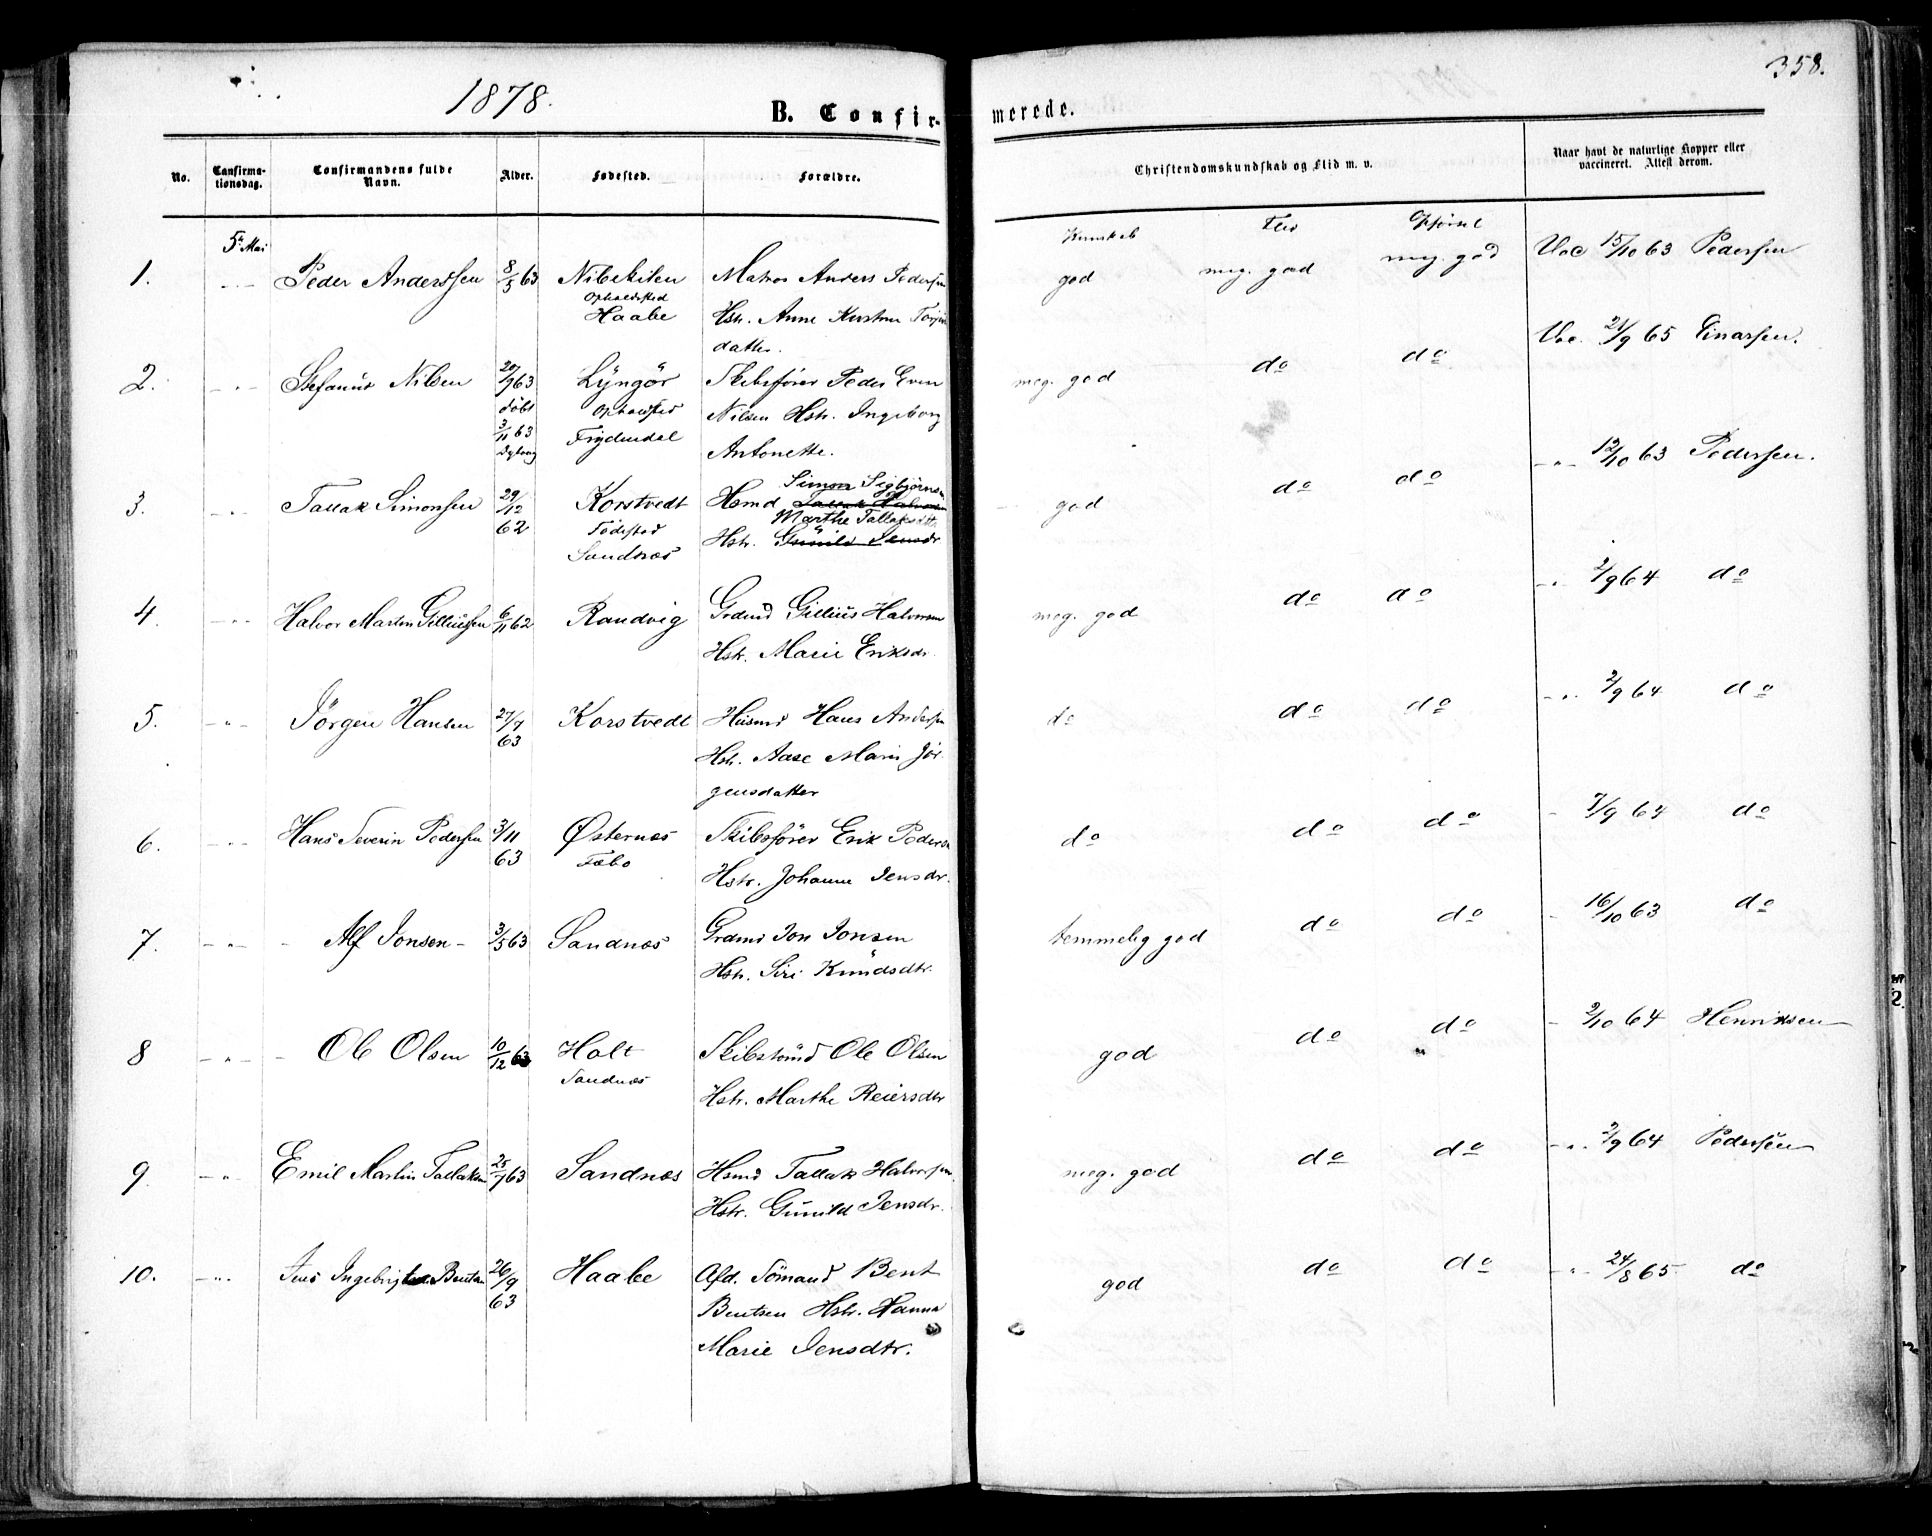 1878.
358.
B. Confir-
merede.
No.
Confirma-
tionsdag.
Confirmandens fulde
Navn.
Alder.
Fødested.
Forældre.
Christendomskundskab og Flid m. v.
Naar havt de naturlige Kopper eller
vaccineret. Attest derom.
Kunskab Flid Opførsel
5te Mai
1. Peder Anderssen 8/5 63 Nibekilen Matros Anders Pedersen god meg. god meg. god Vac 15/10 63 Pedersen
Opholdsted
Haabe Hstr. Anne Kirstine
datter.
2. Stefanus Nilsen 20/9 63 Lyngör Skibsfører Peder Even meg. god do do Vac. 21/9 65 Einarsen.
döbt Opholdsted Nilsen Hstr. Ingeborg
3/11 63 Frydendal Antonette.
Dybvåg
3. Tallak Simonsen 29/12 Korstvedt Hsmd Simon Sigbjørnsen god do do -"- 12/10 63 Pedersen.
Tallak Halvorsen
62 Fødested Marthe Tallaksdtr.
Sandnæs Hstr. Gunild Jensdr
4. Halvor Martin Gilliussen 6/11 62 Randvig Grdmd Gillius Halvorsen meg. god do do -"- 2/9 64 do
Hstr. Marie Eriksdr.
5. -"- Jörgen Hansen 27/7 Korstvedt Husmd Hans Andersen do do do -"- 2/9 64 do
63 Hstr. Aase Marie Jör-
gensdatter
6. Hans Severin Pedersen 3/11 Østernæs Skibsfører Erik Pedersen do do do - 7/9 64 do
63 Fæbo Hstr. Johanne Jensdr.
7. -"- Alf Jonsen - 3/5 63 Sandnæs Grdmd Jon Jonsen temmelig god do do - 16/10 63 do
Hstr. Siri Knudsdtr.
8 -"- Ole Olsen 10/12 63 Holt Skibstömd Ole Olsen god do do - 2/10 64 Henriksen
Sandnæs Hstr. Marthe Reiersdtr
9 -"- Emil Martin Tallaksen 25/7 63 Sandnæs Hsmd Tallak Halvorsen meg. god do do -"- 2/9 64 Pedersen
Hstr. Gunild Jensdr.
10. -"- Jens Ingebrigtsen Bentsen 26/9 Haabe Afd. Sömand Bent god do do -"- 24/8 65 do
63 Bentsen Hstr. Hanna
Marie Jensdtr.